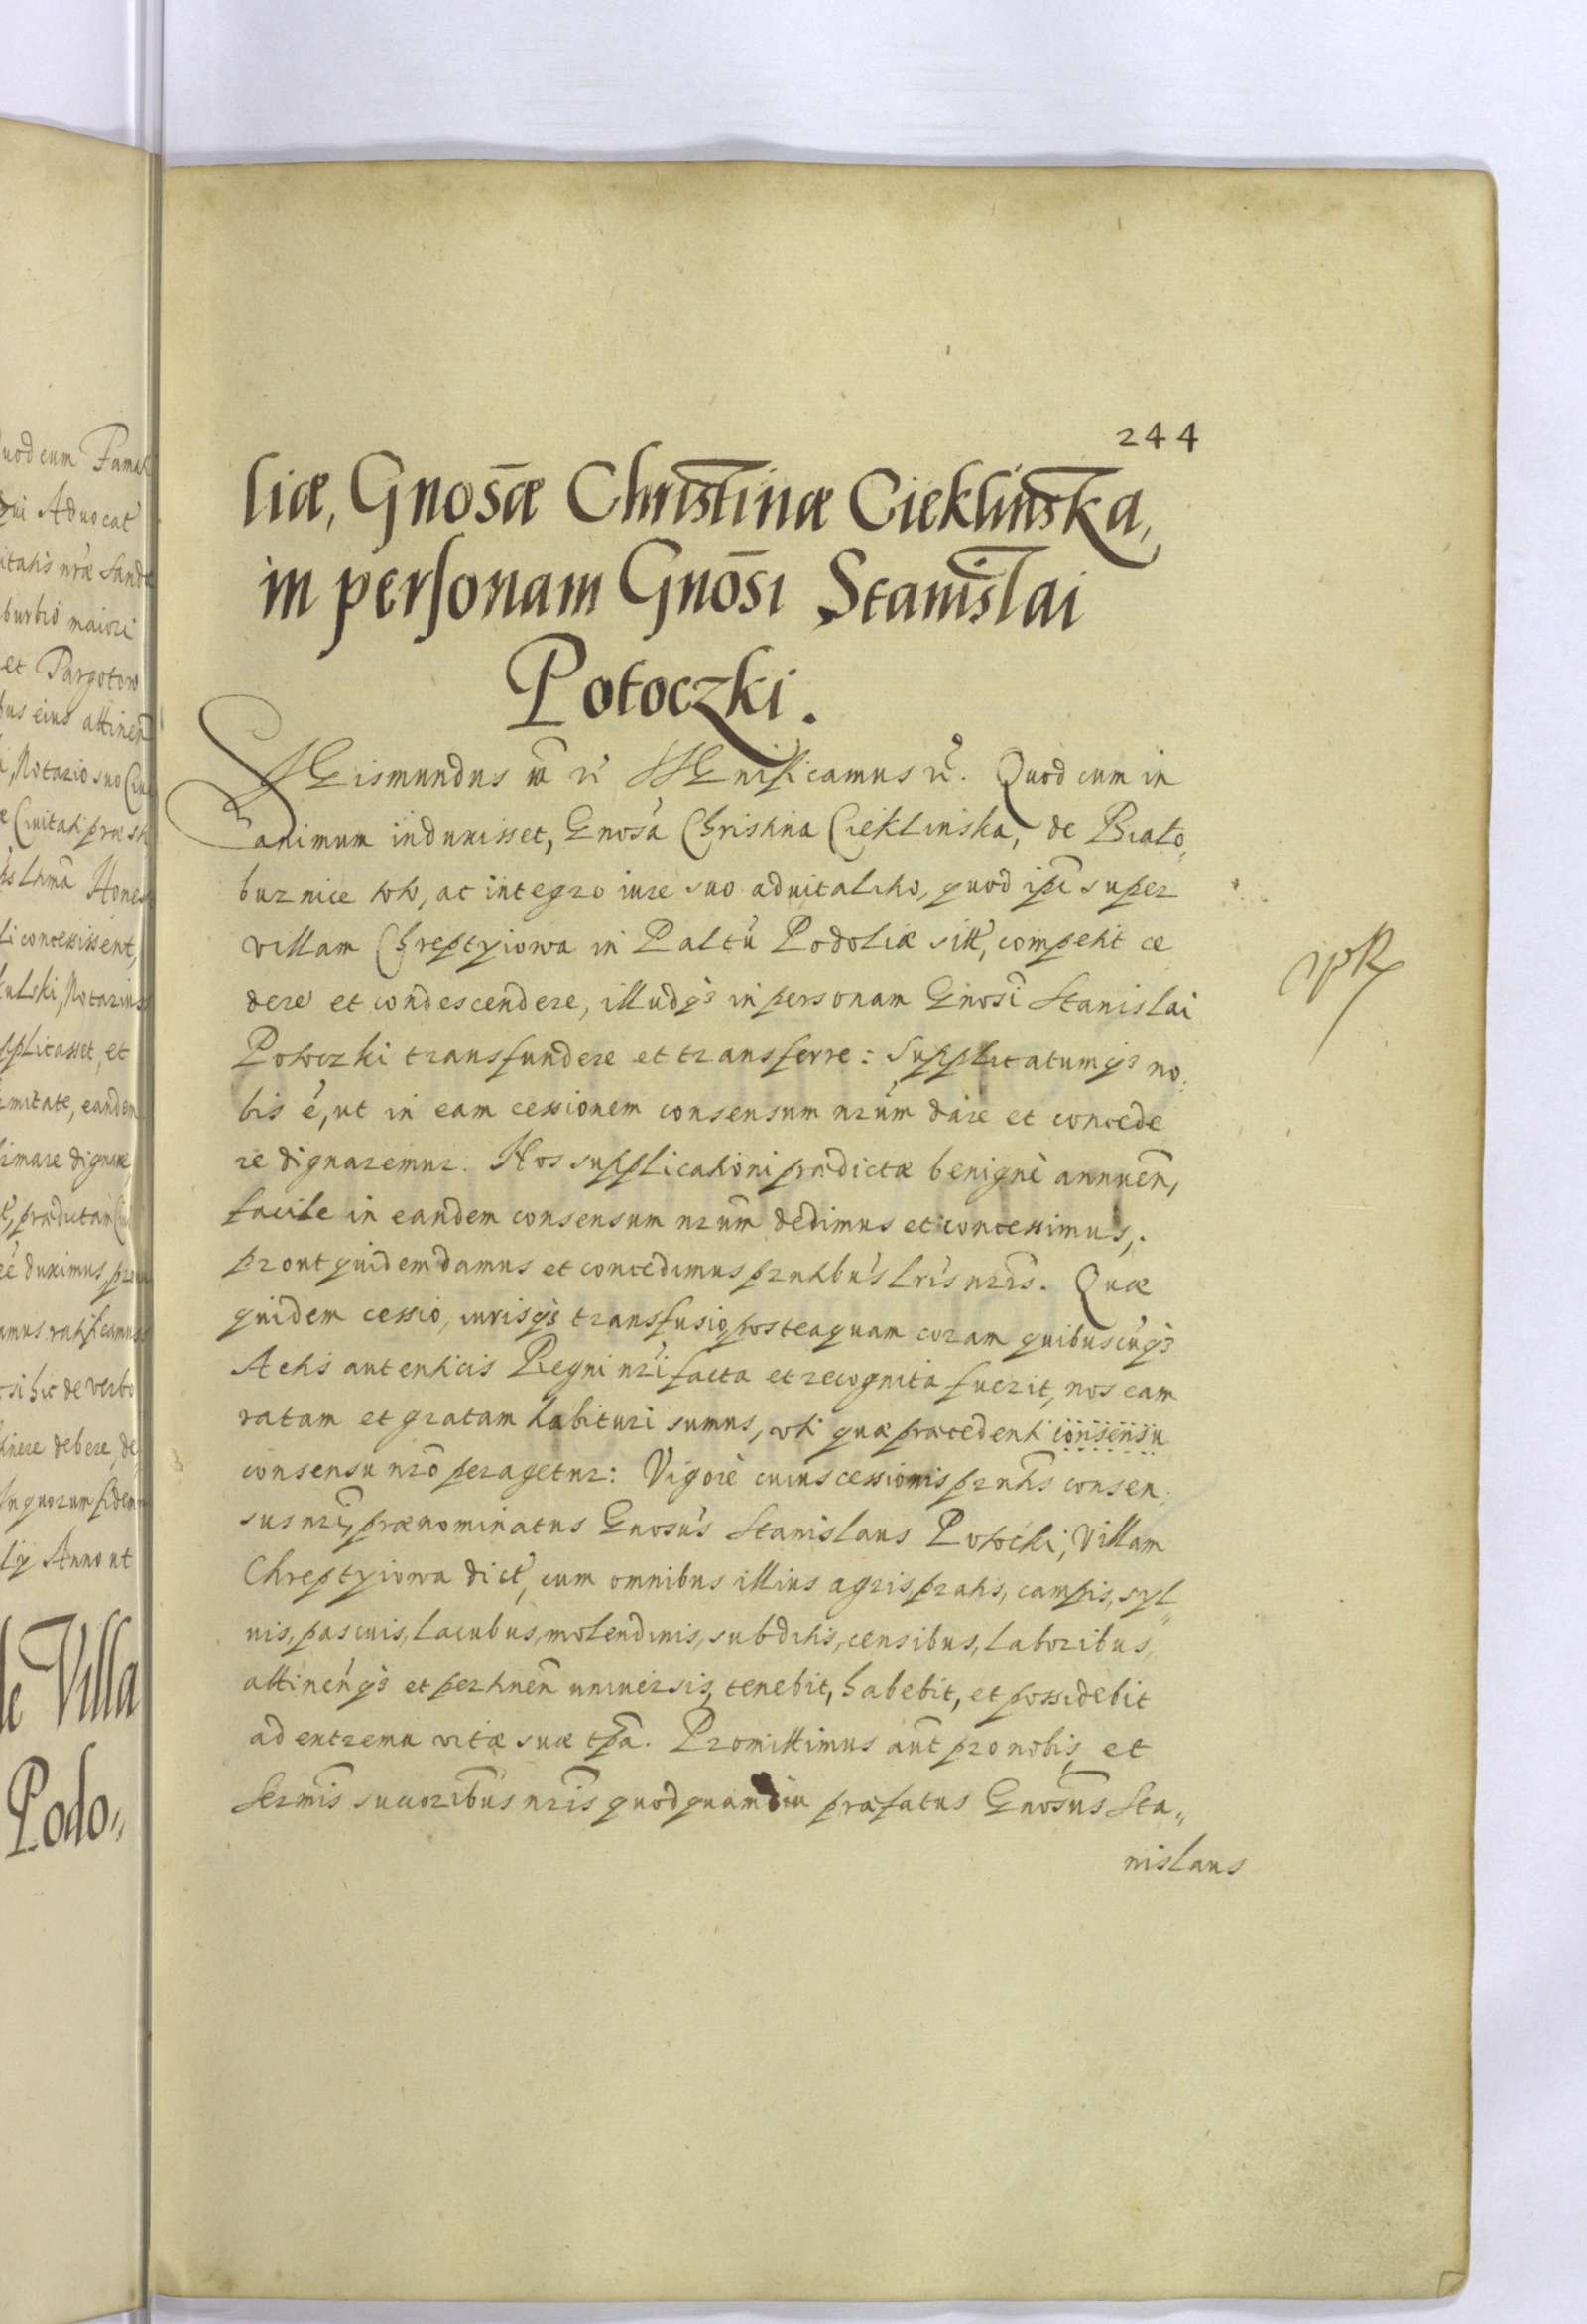 244
liæ, Gnosæ Christinæ Cieklinska,
in personam Gnosi Stanislai
Potoczki.
Sigismundus etc. Significamus etc. Quod cum in
animum induxisset, Gnosa Christina Cieklinska, de Biało,
burnice toto, ac integro iure suo aduitalitio, quod ipi super
villam Chreptyiowa in Paltu Podoliæ sitt, competit ce
dere et condescendere, illudq in personam Gnosi Stanislai
Potoczki transfundere et transferre: Supplicatumq no,
bis é, ut in eam cessionem consensum nrum dare et concede
re dignaremur. Nos supplicationi prædictæ benignè annuen,
facile in eandem consensum nrum dedimus et concessimus,
prout quidem damus et concedimus prntibus lris nris. Quæ
quidem cessio, iurisq transfusio, posteaquam coram quibuscuq
Actis autenticis Regni nri facta et recognita fuerit, nos eam
ratam et gratam habituri sumus, uti quæ præcedenti consensu
consensu nro peragetur: Vigore cuius cessionis prntis consen,
sus nri, prænominatus Gnosus Stanislaus Potocki, Villam
Chreptyiowa dict, cum omnibus illius agris, pratis, campis, syl„
uis, pascuis, lacubus, molendinis, subditis, censibus, laboribus,
attinenq et pertinen uniuersis, tenebit, habebit, et possidebit
ad extrema vitæ suæ tpa. Promittimus aut pro nobis, et
Sermis succoribus nris quod quamdiu præfatus Gnosus Sta„
nislaus
uod eum Famat
qui Aduocat
itatis nræ Sand
burbio maiori
et Pargotow
bus eius attinen
, Notario suo Ciui
e Ciuitati præst
li concessissent,
kulski, Notarius
pplicasset, et
rmitate, eandem
rimare dignare
t, prædictam
é duximus, prou
amus ratificamus
si hic de verbo
tinere debere, de
In quorum fidem
lij Anno ut
de Villa
Podo„